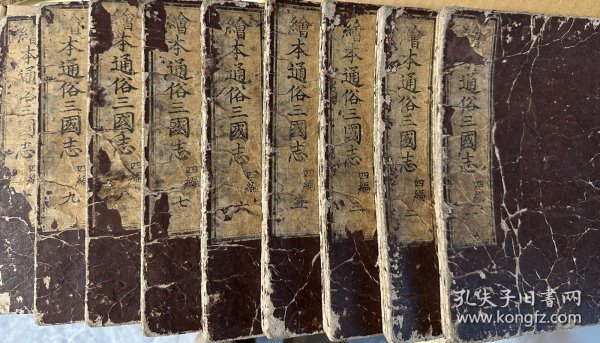 通俗三國志 四編
繪本通俗三國志 四編 二
繪本通俗三國志 四編 三
繪本通俗三國志 四編 五
繪本通俗三國志 四編 六
繪本通俗三國志 四編 七
繪本通俗三國志 四編
繪本通俗三國志 四編 九
繪本通俗三國志 四編
孔夫子旧書网
www.kongfz.com